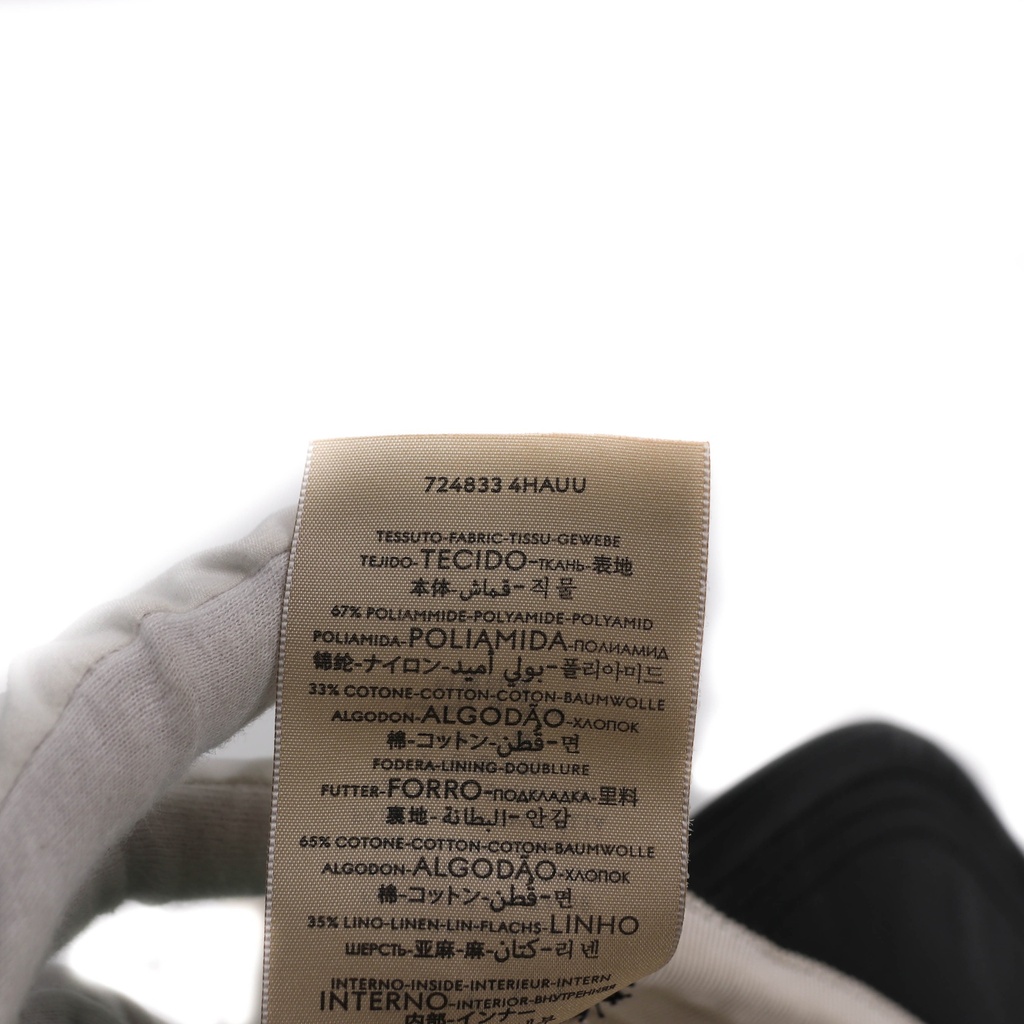 724833 4HAUU
TESSUTO-FABRIC-TISSU-GEWEBE
TEJIDO-TECIDO-ТКАНЬ-表地
本体-قماش-직물
67% POLIAMMIDE-POLYAMIDE-POLYAMID
POLIAMIDA-POLIAMIDA-ПОЛИАМИД
锦纶-ナイロン-بولي أميد-폴리아미드
33% COTONE-COTTON-COTON-BAUMWOLLE
ALGODON-ALGODÃO-ХЛОПОК
棉-コットン-قطن-면
FODERA-LINING-DOUBLURE
FUTTER-FORRO-ПОДКЛАДКА-里料
裏地-البطانة-안감
65% COTONE-COTTON-COTON-BAUMWOLLE
ALGODON-ALGODÃO-ХЛОПОК
棉-コットン-قطن-면
35% LINO-LINEN-LIN-FLACHS-LINHO
ШЕРСТЬ-亚麻-麻-كتان-리넨
INTERNO-INSIDE-INTERIEUR-INTERN
INTERNO-INTERIOR-ВНУТРЕННЯЯ
内部-インナー